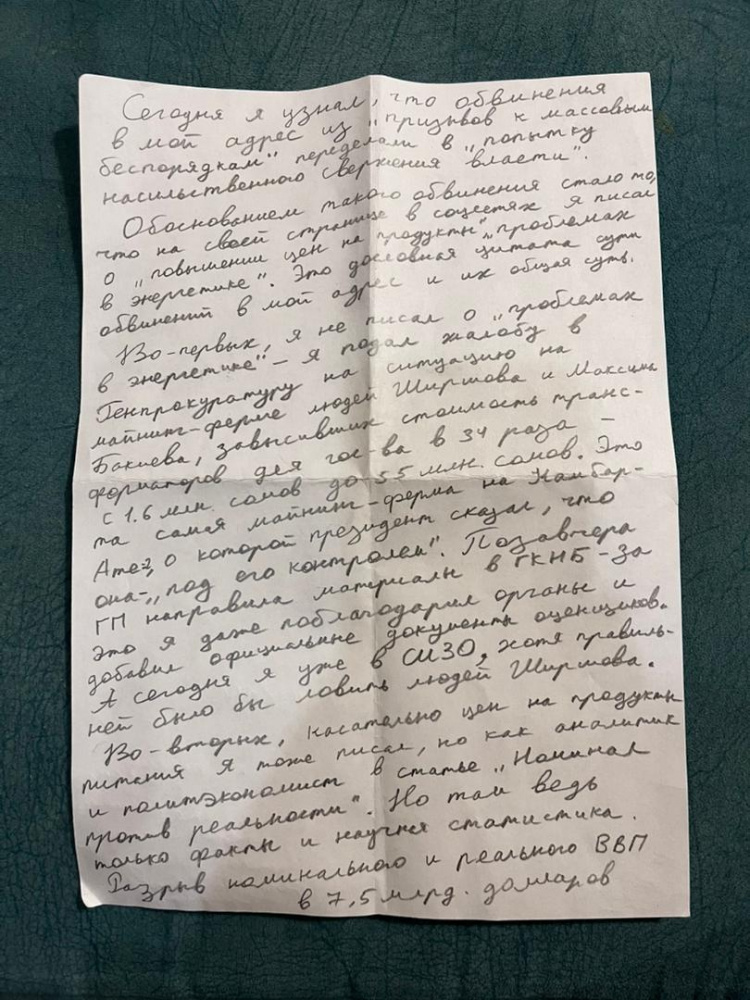 Сегодня я узнал, что обвинения
в мой адрес из „призывов к массовым
беспорядкам" переделали в „попытку
насильственного свержения власти".
Обоснованием такого обвинения стало то,
что на своей странице в соцсетях я писал
о „повышении цен на продукты„, „проблемах
в энергетике". Это дословная цитата сути
обвинений в мой адрес и их общая суть.
Во-первых, я не писал о „проблемах
в энергетике" – я подал жалобу в
Генпрокуратуру на ситуацию на
майнинг-ферме людей Ширшова и Максима
Бакиева, завысивших стоимость транс-
форматоров для гос-ва в 34 раза –
с 1.6 млн. сомов до 55 млн. сомов. Это
та самая майнинг-ферма на Камбар-
Ате-2, о которой президент сказал, что
она- „под его контролем". Позавчера
ГП направила материалы в ГКНБ – за
это я даже поблагодарил органы и
добавил официальные документы оценщиков.
А сегодня я уже в СИЗО, хотя правиль-
ней было бы ловить людей Ширшова.
Во-вторых, касательно цен на продукты
питания я тоже писал, но как аналитик
и политэкономист в статье „Номинал
против реальности". Но там ведь
только факты и научная статистика.
Разрыв номинального и реального ВВП
в 7,5 млрд. долларов